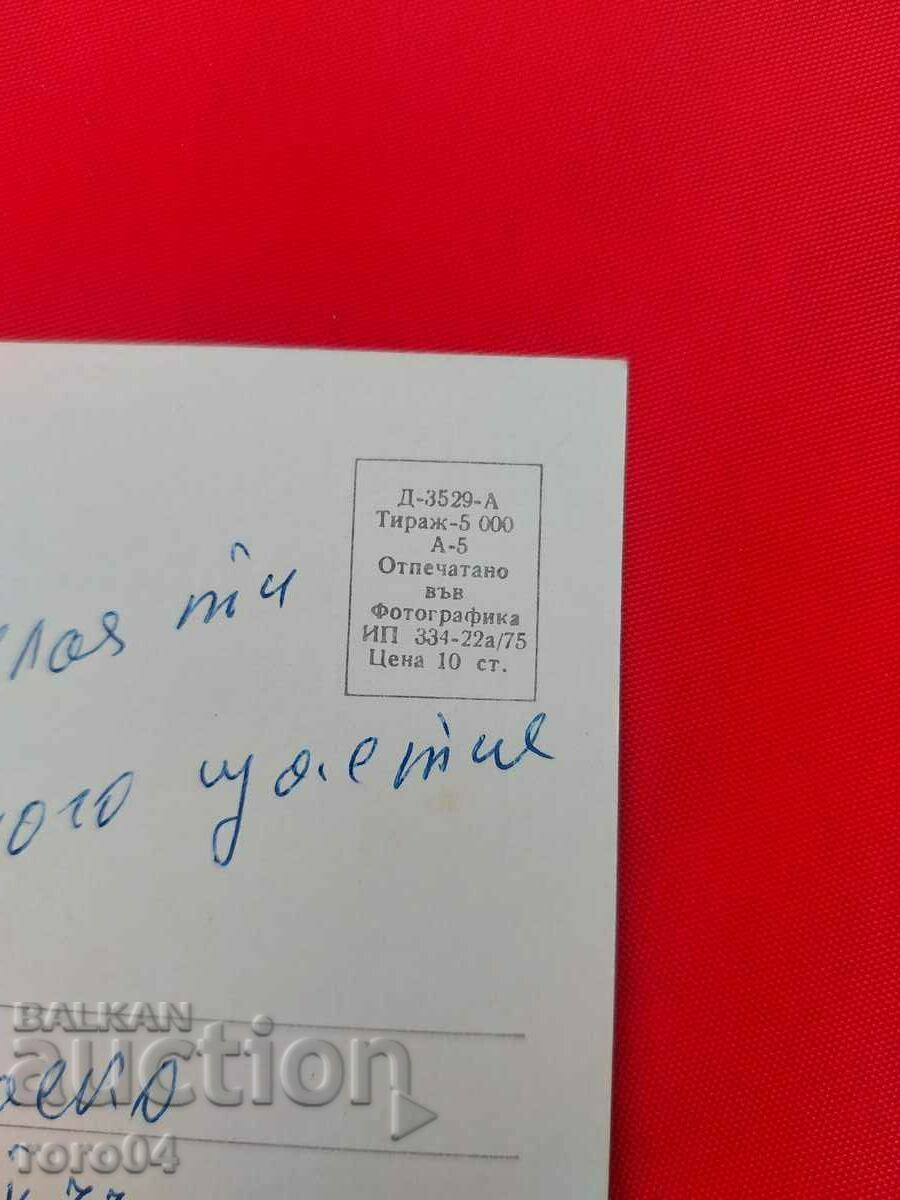 Д-3529-А
Тираж-5 000
А-5
Отпечатано
във
Фотографика
ИП 334-22а/75
Цена 10 ст.
ти
щастие
BALKAN
auction
roro04